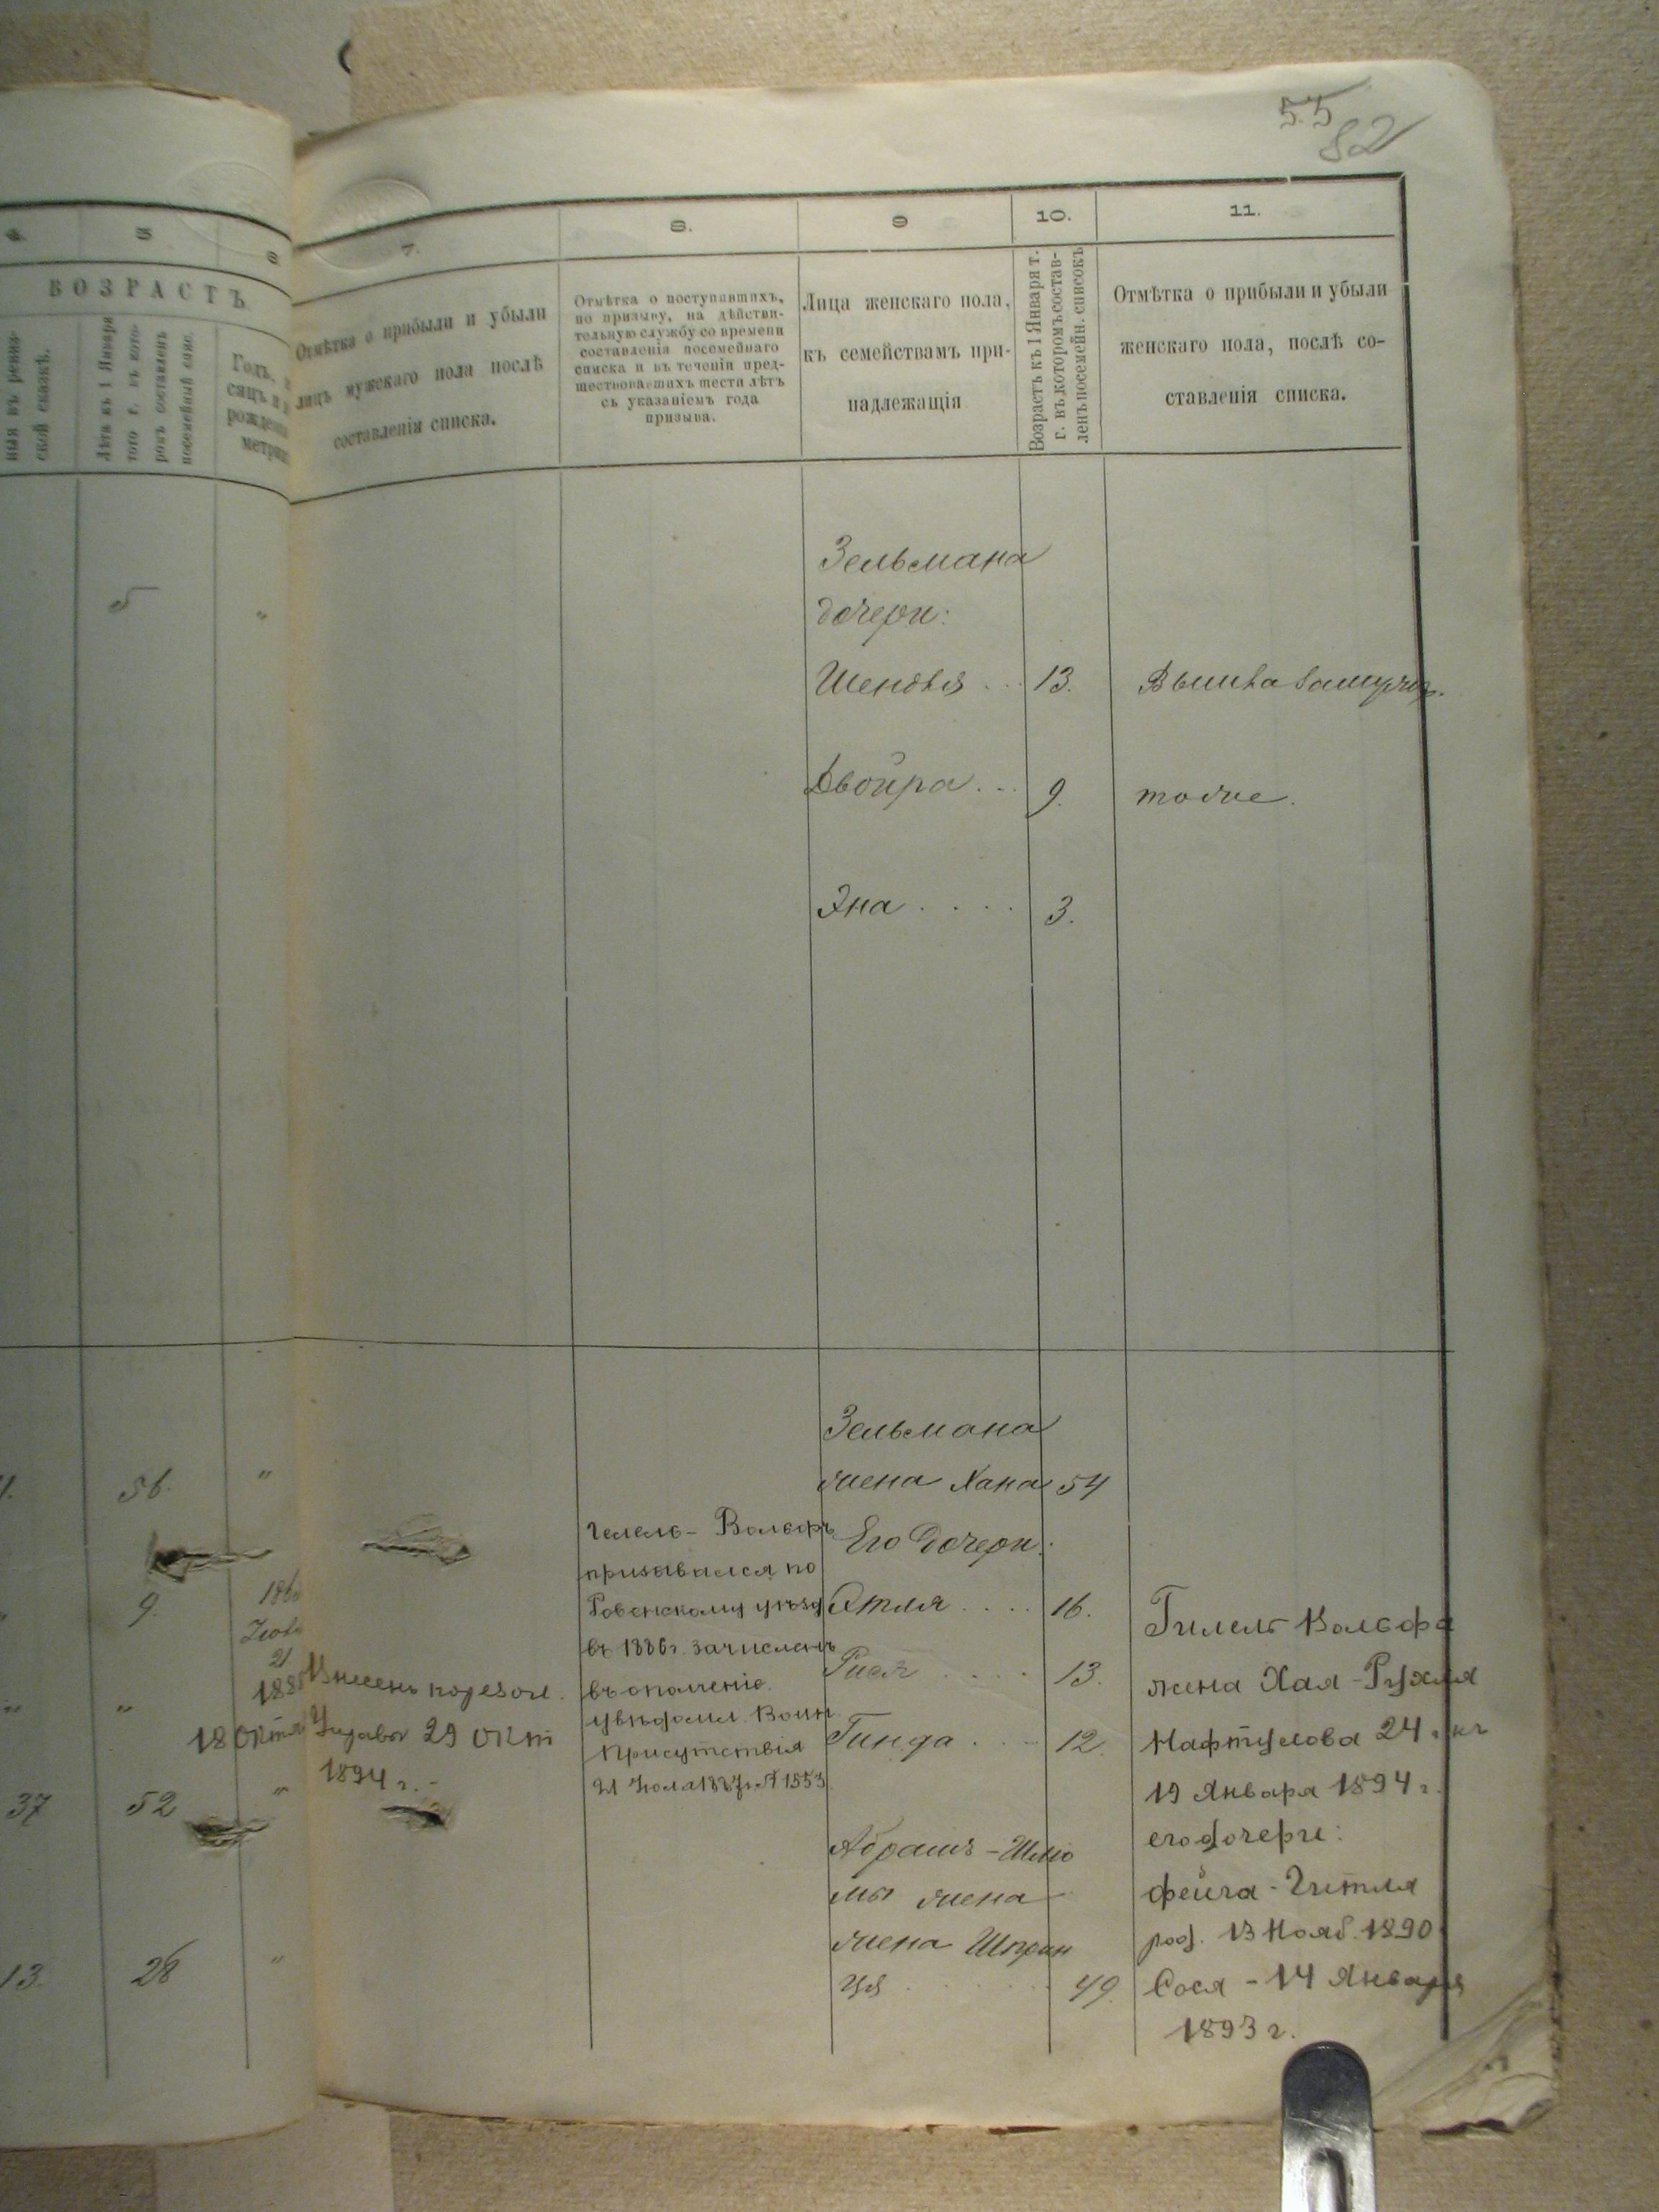 55
82
4
5
6
7.
8.
9
10.
11.
ВОЗРАСТЪ
ской сказкѣ.
Лѣта къ 1 Января
того г. въ кото-
ромъ составленъ
посемейный спис.
Годъ,
рожден
метри
Отмѣтка о прибыли и убыли
лицъ мужскаго пола послѣ
составленія списка.
Отмѣтка о поступившихъ,
по призыву, на дѣйстви-
тельную службу со времени
составленія посемейнаго
списка и въ теченіи пред-
шествовавшихъ шести лѣтъ
съ указаніемъ года
призыва.
Лица женскаго пола,
къ семействамъ при-
надлежащія
Возрастъ къ 1 Января т.
г. въ которомъ состав-
ленъ посемейн. списокъ
Отмѣтка о прибыли и убыли
женскаго пола, послѣ со-
ставленія списка.
5 "
Зельмана
дочери:
Шендля . . . 13. Вышла замуж.
Двойра . . . 9. тоже.
Эна . . . . 3.
Зельмана
56. "
жена Хана 54
Гилель-Вольфъ
призывался по
Ровенскому уѣзд
въ 1886 г. зачисленъ
въ ополченіе.
увѣдомл. Воин
Присутствія
21 Іюля 1887 г. № 1553
Его дочери:
9.
Этля . . . . 16.
Рися . . . . 13.
Гинда . . . 12.
" "
21
18 Окт
29 Окт
1894 г. -
37 52 "
Абрамъ-Шлио
мы жена
жена Шприн
ця . . . . . 49.
13. 26 "
Гилель Вольфа
жена Хая-Рухля
Нафтулова 24 л. къ
19 Января 1894 г.
его дочери:
Фейга-Гитля
род. 13 Нояб. 1890
Сося - 14 Января
1893 г.